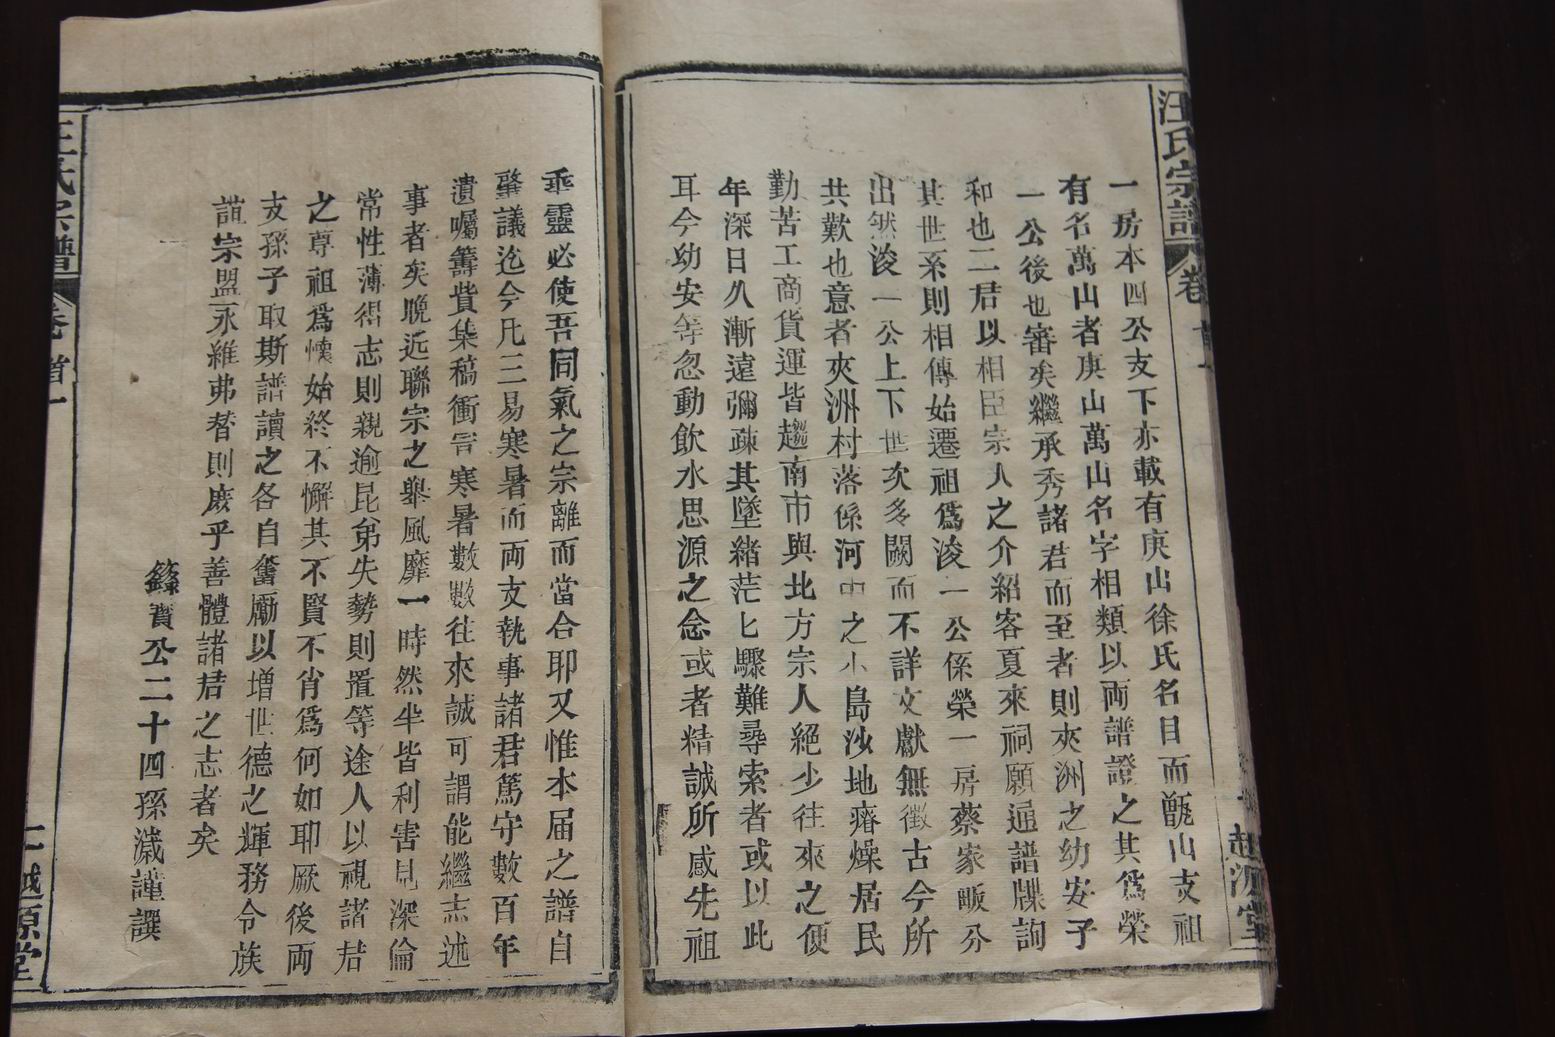 汪氏宗譜 卷首一
一房本四公支下亦載有庚山徐氏名目而甑山支祖
有名萬山者庚山萬山名字相類以両譜證之其爲榮
一公後也審矣繼承秀諸君而至者則夾洲之幼安子
和也二君以相臣宗人之介紹客夏來祠願通譜牒詢
其世系則相傳始遷祖爲浚一公係榮一房蔡家畈分
出然浚一公上下世次多闕而不詳文獻無徵古今所
共歎也意者夾洲村落係河中之小島沙地瘠燥居民
勤苦工商貨運皆趨南市與北方宗人絕少往來之便
年深日久漸遠彌疎其墜緒茫匕驟難尋索者或以此
耳今幼安等忽動飲水思源之念或者精誠所感先祖
乖靈必使吾同氣之宗離而當合耶又惟本届之譜自
肇議迄今凡三易寒暑而両支執事諸君篤守數百年
遺囑籌貲集稿衝寒暑數數往來誠可謂能繼志述
事者矣晚近聯宗之舉風靡一時然半皆利害見深倫
常性薄得志則親逾昆弟失勢則置等途人以視諸君
之尊祖爲懷始終不懈其不賢不肖爲何如耶厥後両
支孫子取斯譜讀之各自奮勵以增世德之輝務令族
誼宗盟永維弗替則庶乎善體諸君之志者矣
籙寶公二十四孫濊謹譔
汪氏宗譜 卷首一
越源堂